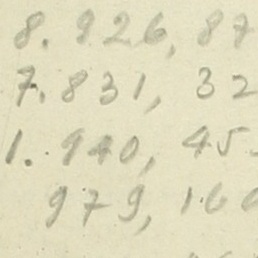 8.926,87
7.831,32
1.940,45
979,160